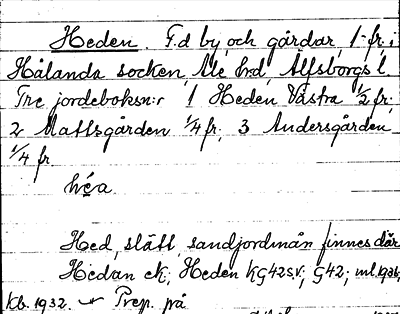 Heden. F.d by och gårdar, 1 fr. i
Hålanda socken, Ale hrd, Älfsborgs l.
Tre jordeboksn:r 1 Heden Västra 1/2 fr;
2 Mattsgården 1/4 fr, 3 Andersgården
1/4 fr
héa
Hed, slätt, sandjordmån finnes där
Hedan ek, Heden KG42SV; G42; ml.1936,
Kb. 1932. Prep. på